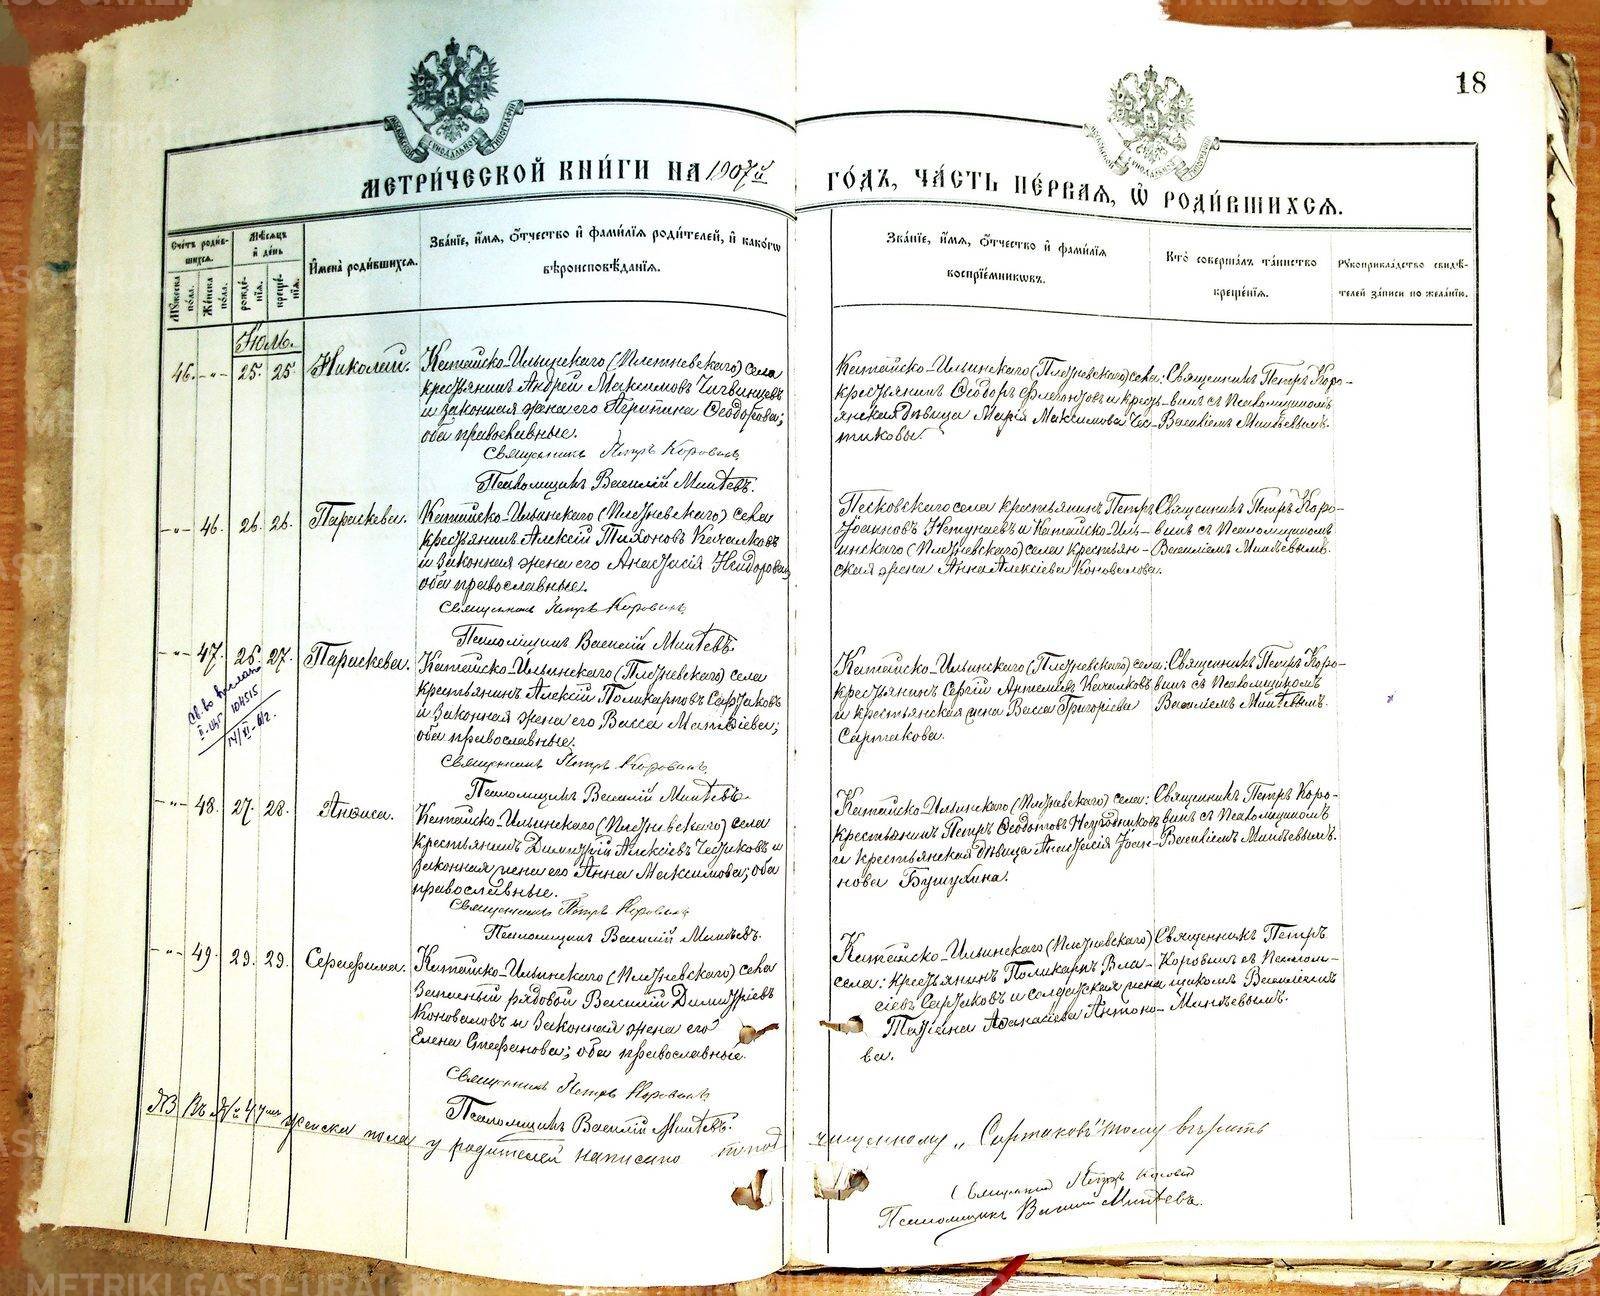 18
МЕТРИ́ЧЕСКОЙ КНИ́ГИ НА 1907й
ГО́ДЪ, ЧА́СТЬ ПЕ́РВАЯ, Ѿ РОДИ́ВШИХСЯ.
Сче́тъ роди́в-
шихся.
Мѣ́сяцъ
и де́нь
Мꙋжеска
по́ла.
Же́нска
по́ла.
рожде́-
нїя.
креще́-
нїя.
И҆мена̀ роди́вшихся.
Зва́нїе, и҆́мя, ѻ҆́тчество и҆ фами́лїя роди́телей, и҆ како́гѡ
вѣроисповѣ́данїя.
Зва́нїе, и҆́мя, ѻ҆́тчество и҆ фами́лїя
воспрїе́мникѡвъ.
Кто̀ соверша́лъ та́инство
креще́нїя.
Рꙋкоприкла́дство свидѣ́-
телей за́писи по жела́нїю.
Іюль.
46. -"- 25. 25. Николай.
Катайско-Ильинскаго (Плетневскаго) села
крестьянинъ Андрей Максимовъ
и законная жена его Агрипина Ѳеодорова;
оба православные.
Священникъ Петръ Коровинъ
Псаломщикъ Василій
Катайско-Ильинскаго (Плетневскаго) села:
крестьянинъ Ѳеодоръ и кресть-
янская дѣвица Марія Максимова Чес-
тиковы.
Священникъ Петръ Коро-
винъ съ псаломщикомъ
Василіемъ
-"- 46. 26. 26. Параскева.
Катайско-Ильинскаго (Плетневскаго) села
крестьянинъ Алексій Тихоновъ
и законная жена его Анастасія
оба православные.
Священникъ Петръ Коровинъ
Псаломщикъ Василій
села крестьянинъ Петръ
Іоанновъ и Катайско-Иль-
инскаго (Плетневскаго) села крестьян-
ская жена Анна Алексіева Коновалова.
Священникъ Петръ Коро-
винъ съ псаломщикомъ
Василіемъ
-"- 47. 25. 27. Параскева.
Св.во выслано
104515
Катайско-Ильинскаго (Плетневскаго) села
крестьянинъ Алексій Поликарповъ Сартаковъ
и законная жена его Васса Матѳіева;
оба православные.
Священникъ Петръ Коровинъ
Псаломщикъ Василій
Катайско-Ильинскаго (Плетневскаго) села:
крестьянинъ Сергій Артемиевъ
и крестьянская жена Васса Григоріева
Сартакова.
Священникъ Петръ Коро-
винъ съ псаломщикомъ
Василіемъ
-"- 48. 27. 28. Анѳиса.
Катайско-Ильинскаго (Плетневскаго) села
крестьянинъ Димитрій Алексіевъ Честиковъ и
законная жена его Анна Максимова; оба
православные.
Священникъ Петръ Коровинъ
Псаломщикъ Василій
Катайско-Ильинскаго (Плетневскаго) села:
крестьянинъ Петръ Ѳеодотовъ
и крестьянская дѣвица Анастасія Іоан-
нова Бушухина.
Священникъ Петръ Коро-
винъ съ псаломщикомъ
Василіемъ
-"- 49. 29. 29. Серафима.
Катайско-Ильинскаго (Плетневскаго) села
запасный рядовой Василій Димитріевъ
Коноваловъ и законная жена его
Елена Стефанова; оба православные.
Священникъ Петръ Коровинъ
Псаломщикъ Василій
Катайско-Ильинскаго (Плетневскаго)
села: крестьянинъ Поликарпъ Вла-
сіевъ Сартаковъ и солдатская жена
Татіана Аѳанасіева Антоно-
ва.
Священникъ Петръ
Коровинъ съ псалом-
щикомъ Василіемъ
NB Въ № 47мъ женска пола у родителей написано по под
чищенному "Сартаковъ" тому вѣрить
Священникъ Петръ Коровин
Псаломщикъ Василій
METRIKI.GASO-URAL.RU